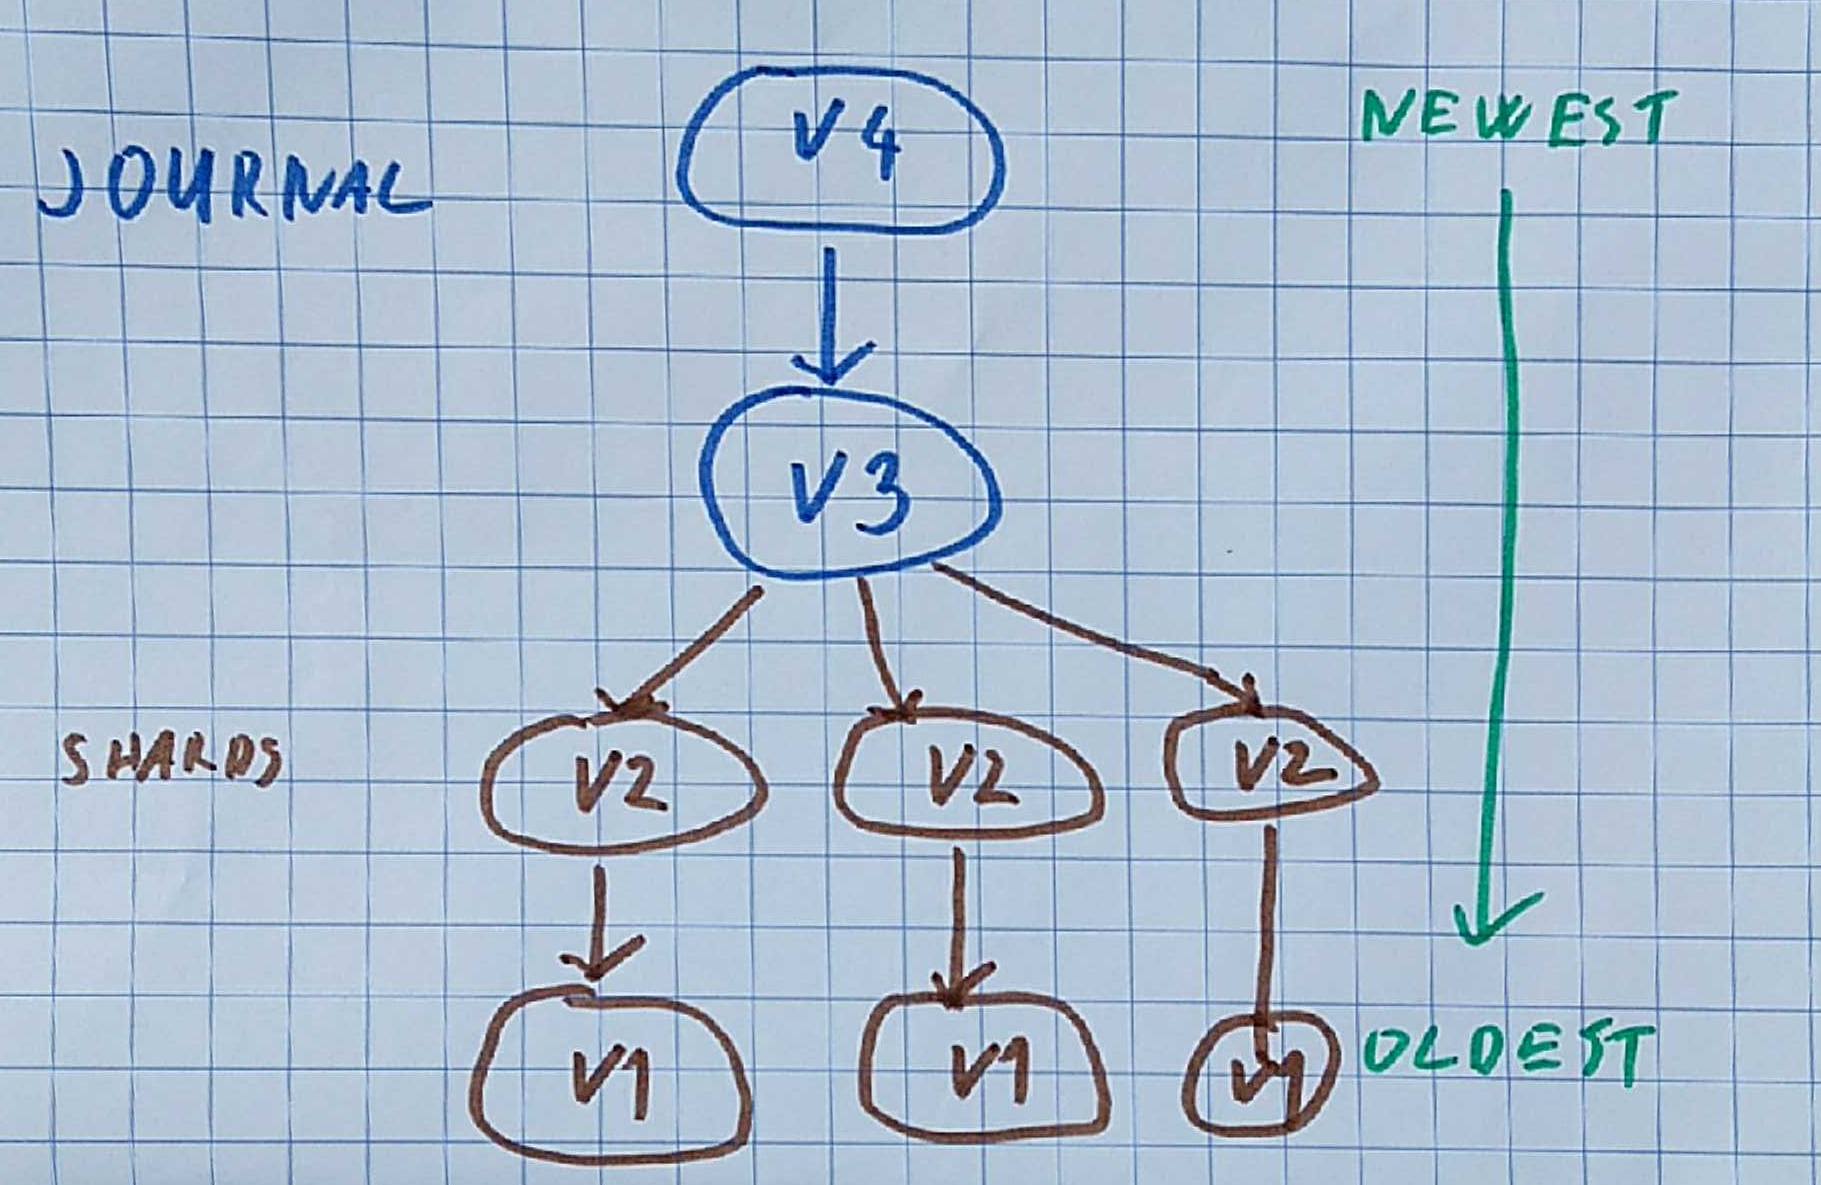 JOURNAL
V4
NEWEST
V3
SHARDS
V2
V2
V2
V1
V1
V1
OLDEST